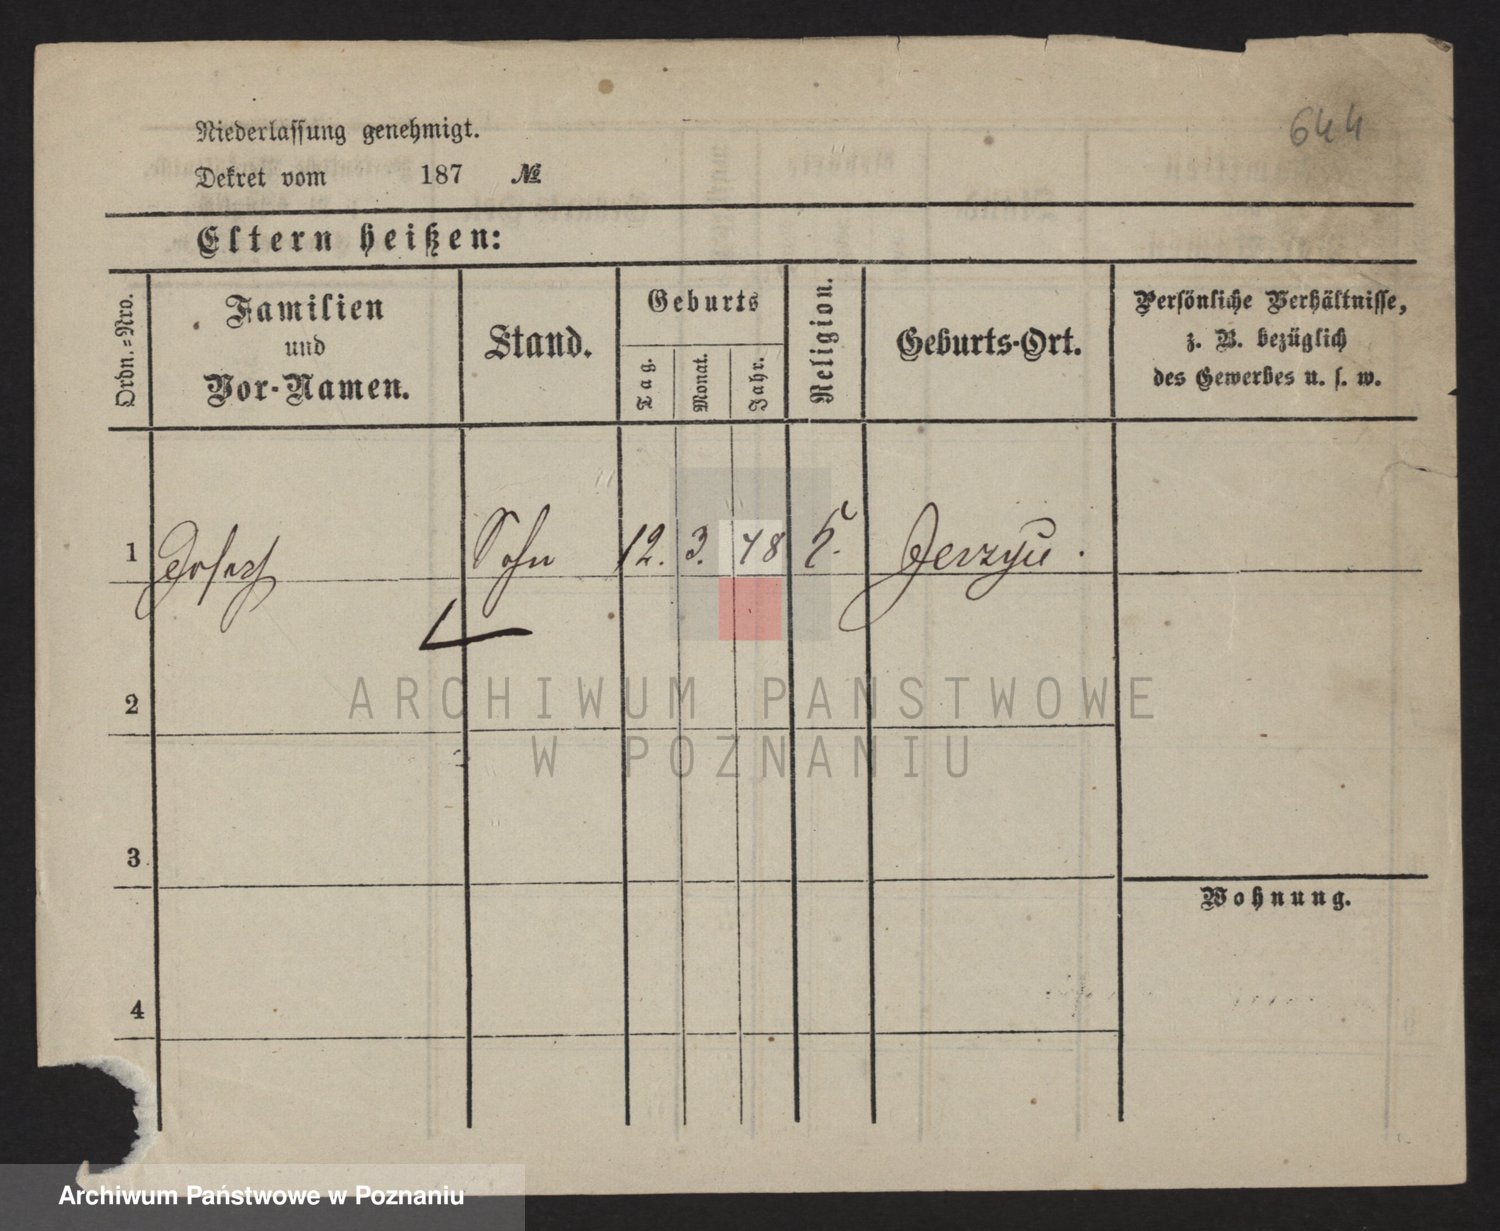 644
Niederlassung genehmigt.
Dekret vom 187 №
Eltern heißen:
Ordn.-Nro.
Familien
und
Vor-Namen.
Stand.
Geburts
Tag.
Monat.
Jahr.
Religion.
Geburts-Ort.
Persönliche Verhältnisse,
z. B. bezüglich
des Gewerbes u. s. w.
1 Josef Sohn 12. 3. 78 k. Jerzyce.
2
3
Wohnung.
4
ARCHIWUM PAŃSTWOWE
W POZNANIU
Archiwum Państwowe w Poznaniu